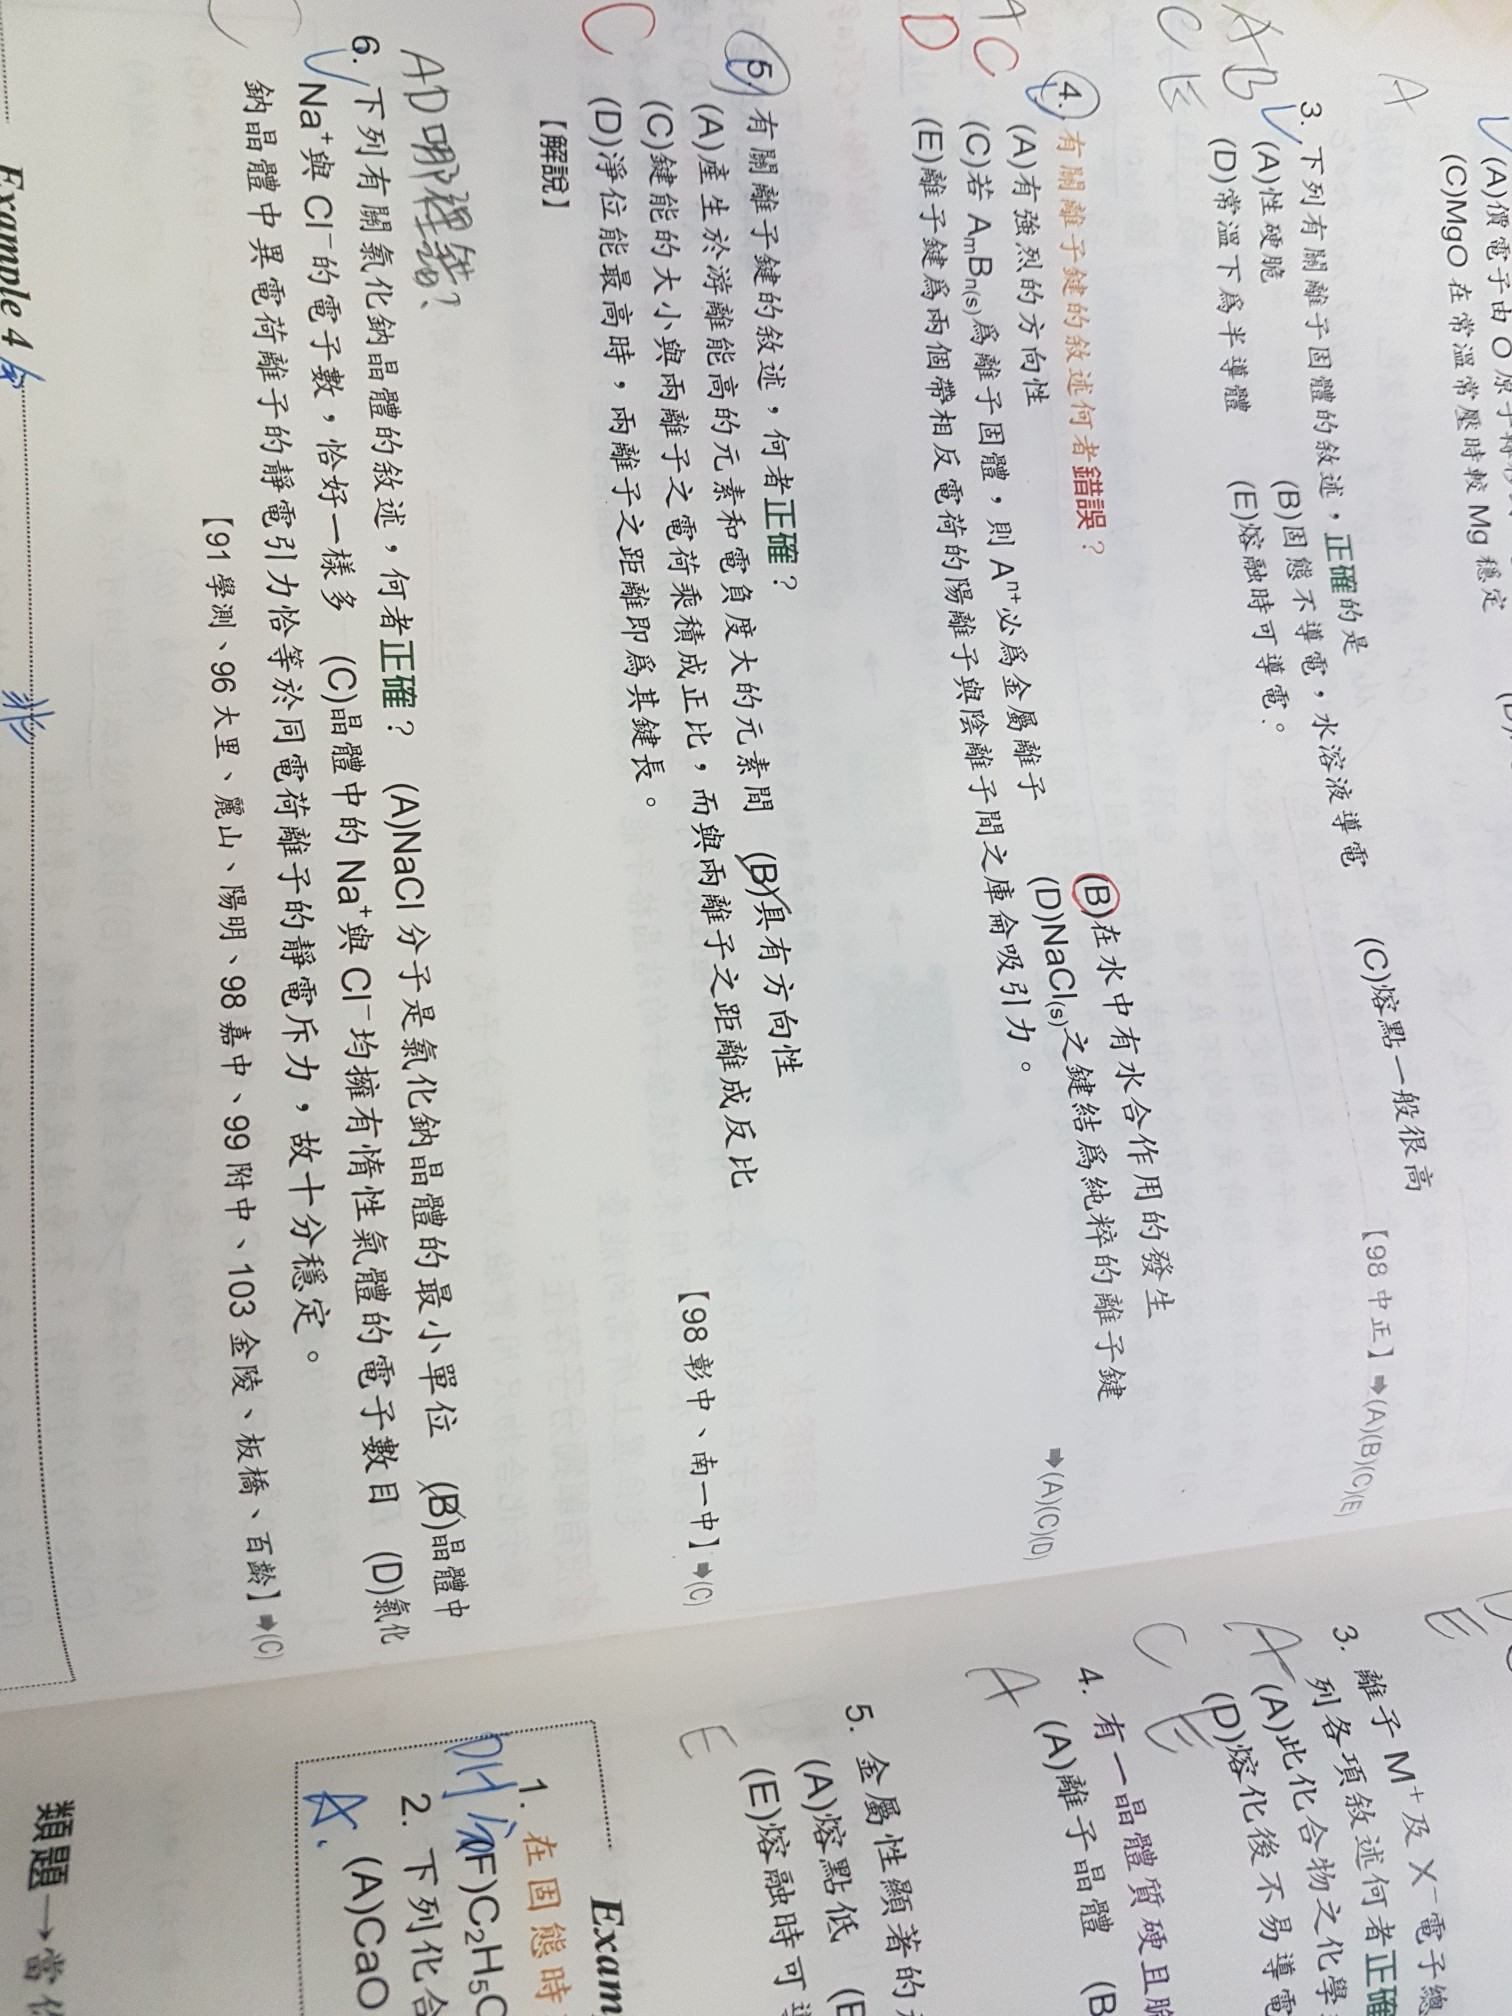 (A)價電子由 O 原子轉移
(C)MgO 在常溫常壓時較 Mg 穩定
A
3. 下列有關離子固體的敘述，正確的是
(A)性硬脆 (B)固態不導電，水溶液導電 (C)熔點一般很高
(D)常溫下為半導體 (E)熔融時可導電。 【98 中正】➡(A)(B)(C)(E)
AB
CE
4. 有關離子鍵的敘述何者錯誤？
(A)有強烈的方向性 (B)在水中有水合作用的發生
(C)若 AmBn(s)為離子固體，則 Aⁿ⁺必為金屬離子 (D)NaCl(s)之鍵結為純粹的離子鍵
(E)離子鍵為兩個帶相反電荷的陽離子與陰離子間之庫侖吸引力。
➡(A)(C)(D)
AC
D
5. 有關離子鍵的敘述，何者正確？
(A)產生於游離能高的元素和電負度大的元素間 (B)具有方向性
(C)鍵能的大小與兩離子之電荷乘積成正比，而與兩離子之距離成反比
(D)淨位能最高時，兩離子之距離即為其鍵長。 【98 彰中、南一中】➡(C)
C
【解說】
AD哪裡錯？
6. 下列有關氯化鈉晶體的敘述，何者正確？ (A)NaCl 分子是氯化鈉晶體的最小單位 (B)晶體中
Na⁺與 Cl⁻的電子數，恰好一樣多 (C)晶體中的 Na⁺與 Cl⁻均擁有惰性氣體的電子數目 (D)氯化
鈉晶體中異電荷離子的靜電引力恰等於同電荷離子的靜電斥力，故十分穩定。
【91 學測、96 大里、麗山、陽明、98 嘉中、99 附中、103 金陵、板橋、百齡】➡(C)
C
Example 4
E
3. 離子 M⁺及 X⁻電子總
列各項敘述何者正確
(A)此化合物之化學
(D)熔化後不易導電
A
C
E
4. 有一晶體質硬且脆
(A)離子晶體 (B
A
5. 金屬性顯著的
(A)熔點低
(E)熔融時可
E
Exam
1. 在固態時
(F)C₂H₅O
2. 下列化合
(A)CaO
A.
類題→當化